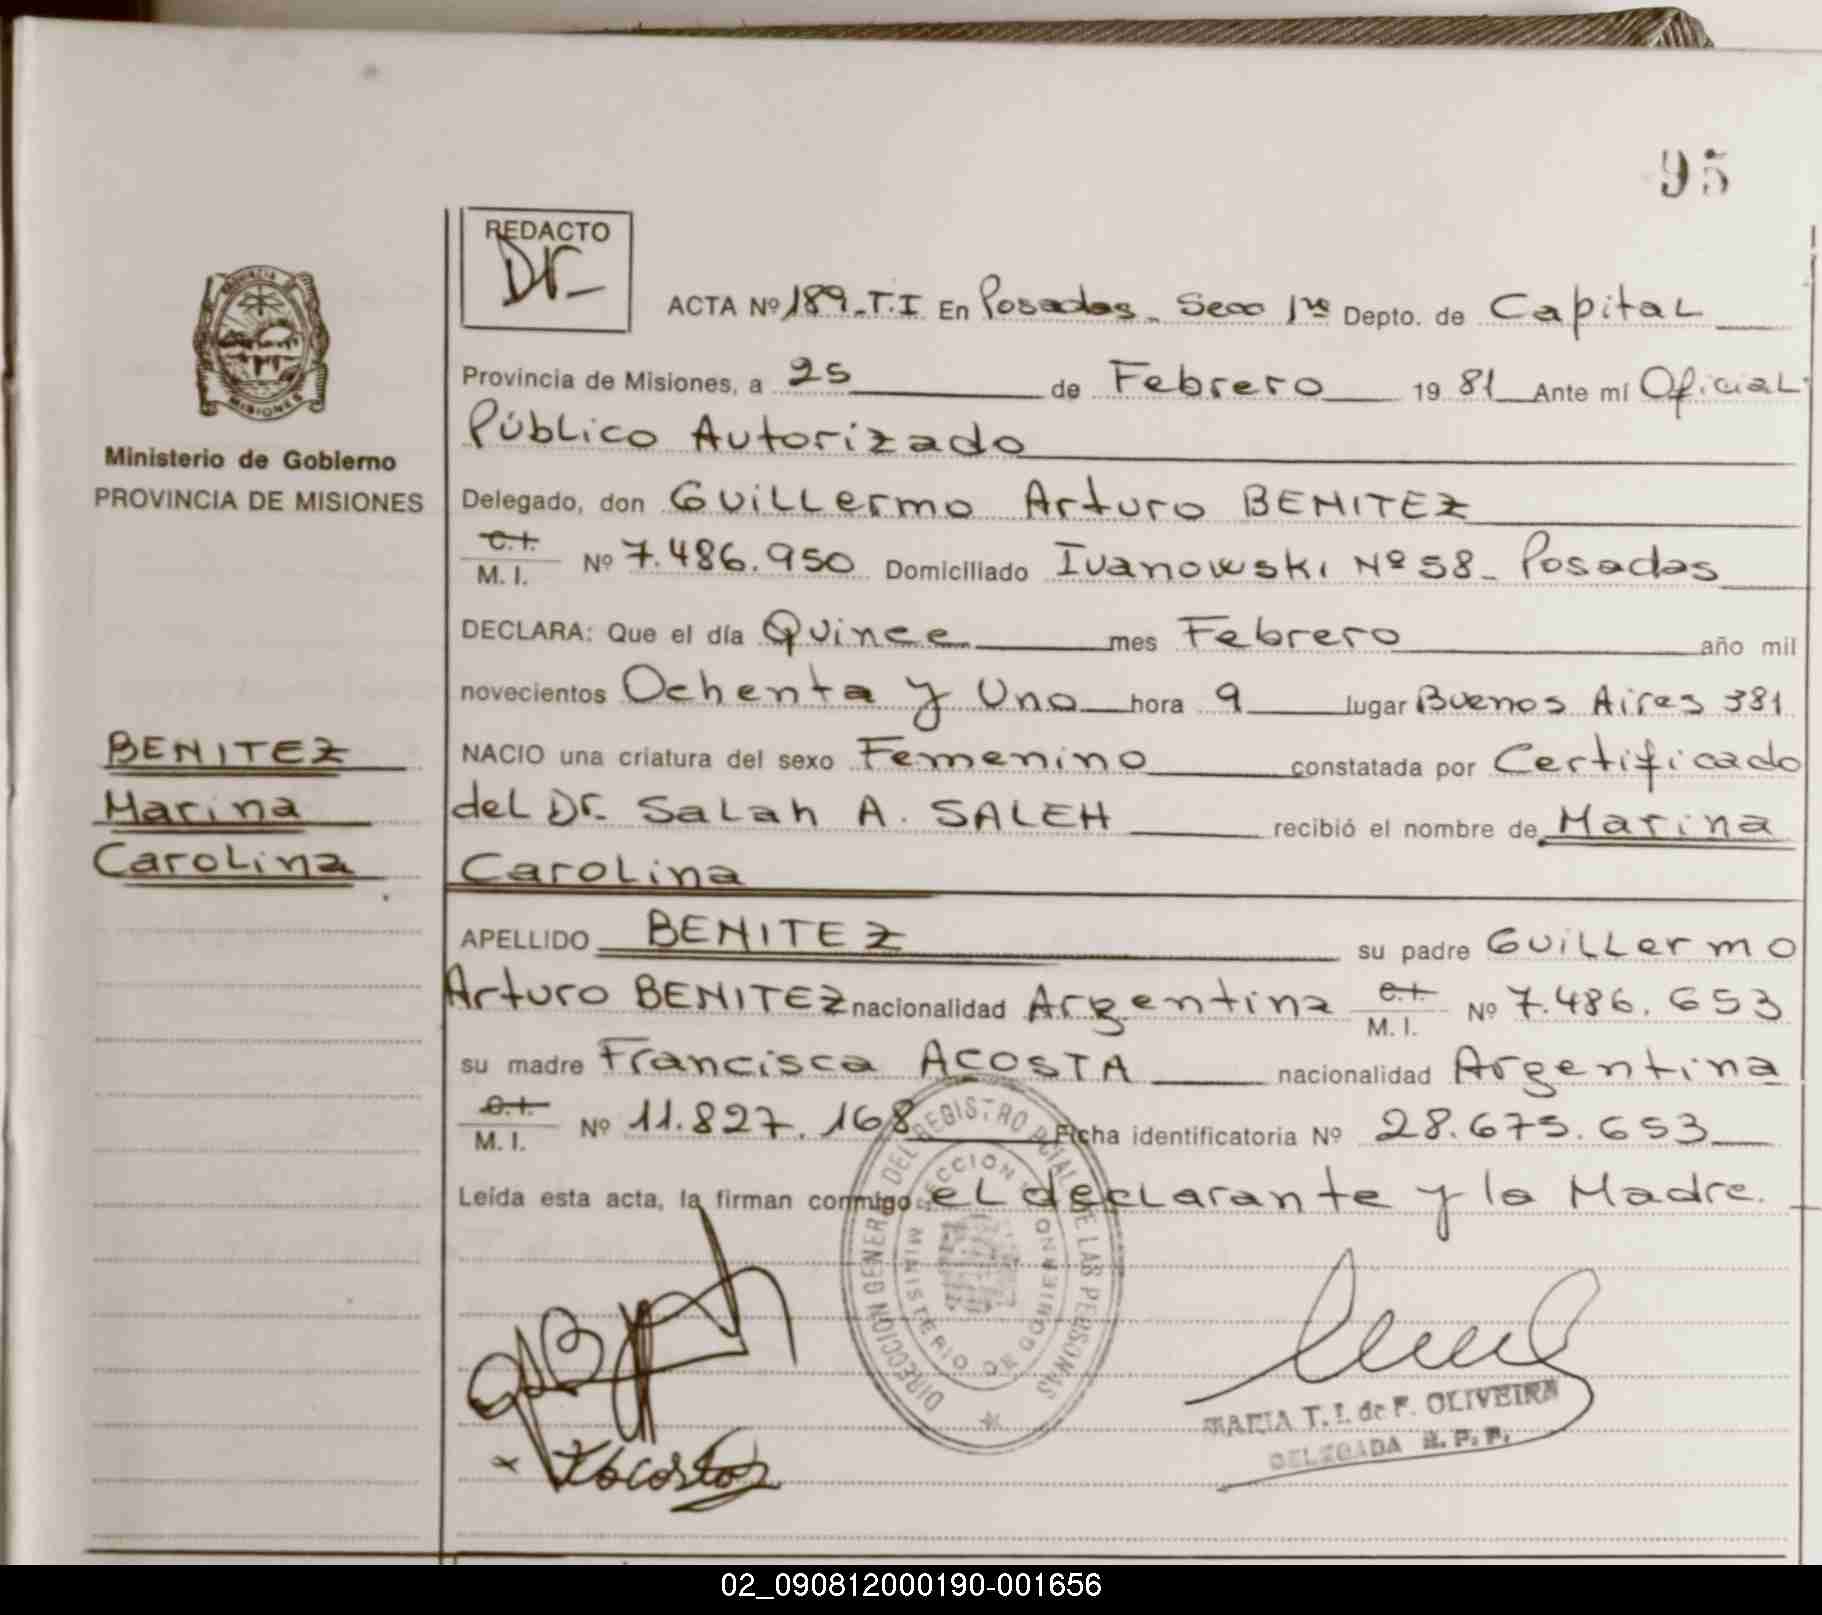 95
REDACTO
Dr_
ACTA Nº 189_T.I En Posadas_ Secc 1ra Depto. de Capital
Provincia de Misiones, a 25 de Febrero 19 81 Ante mí Oficial
Público Autorizado
Delegado, don Guillermo Arturo BENITEZ
C.I.
M. I. Nº 7.486.950 Domiciliado Ivanowski Nº 58_ Posadas
DECLARA: Que el día Quince mes Febrero año mil
novecientos Ochenta y Uno hora 9 lugar Buenos Aires 381
NACIO una criatura del sexo Femenino constatada por Certificado
del Dr. Salah A. SALEH recibió el nombre de Marina
Carolina
APELLIDO BENITEZ su padre Guillermo
Arturo BENITEZ nacionalidad Argentina C.I. M. I. Nº 7.486.653
su madre Francisca ACOSTA nacionalidad Argentina
C.I.
M. I. Nº 11.827.168 Ficha identificatoria Nº 28.675.653
Leída esta acta, la firman conmigo el declarante y la Madre.
PROVINCIA DE MISIONES
Ministerio de Gobierno
PROVINCIA DE MISIONES
BENITEZ
Marina
Carolina
DIRECCION GENERAL DEL REGISTRO PCIAL. DE LAS PERSONAS
MINISTERIO DE GOBIERNO
SECCION
MARIA T. I. de F. OLIVEIRA
DELEGADA R. P. P.
02_090812000190-001656